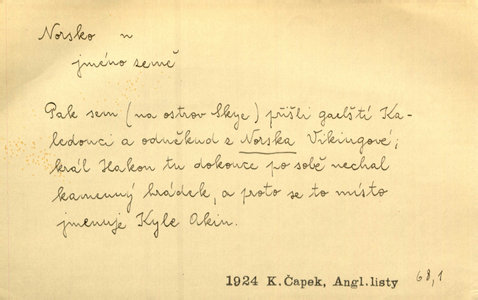 Norsko n
jméno země
Pak sem (na ostrov Skye) přišli gaelští Ka-
ledonci a odněkud z Norska Vikingové;
král Hakon tu dokonce po sobě nechal
kamenný hrádek, a proto se to místo
jmenuje Kyle Akin.
1924 K.Čapek, Angl.listy 68,1